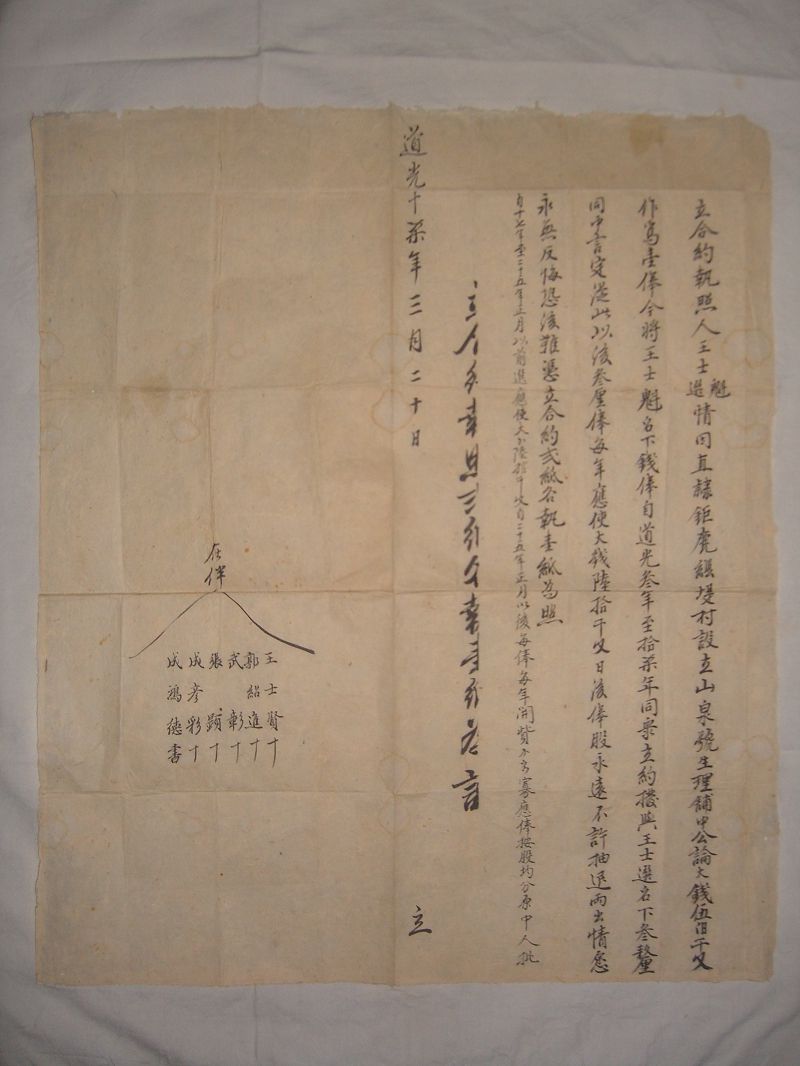 立合約執照人王士魁選情因直隸鉅鹿縣堤村設立山泉號生理鋪中公論大錢伍百千文
作為壹俸今將王士魁名下錢俸自道光叁年至拾柒年同衆立約撥與王士選名下叁釐
同中言定從此以後叁厘俸每年應使大錢陸拾千文日後俸股永遠不許抽退兩出情愿
永無反悔恐後難憑立合約弍紙各執壹紙為照
自十七年至二十五年正月以前選應使大錢陸拾千文自二十五年正月以後每俸每年開貲應俸按股均分原中人批
道光十柒年三月二十日 立
在俸
王士賢十
郭紹進十
武彰十
張顕十
成彥彩十
成鴻德書